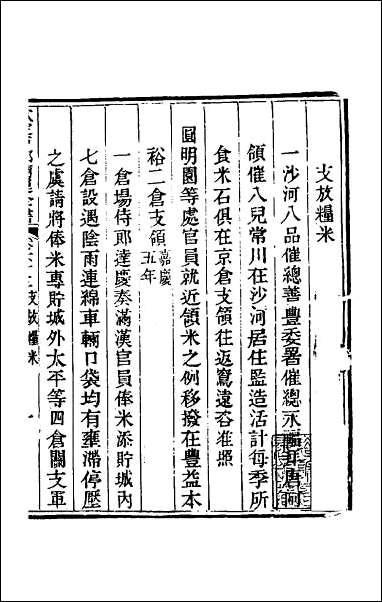 支放糧米
一沙河八品催總善豐委署催總永
領催八兒常川在沙河居住監造活計每季所
食米石俱在京倉支領往返寫遠咨准照
圓明園等處官員就近領米之例移撥在豐益本
裕二倉支領嘉慶五年
一倉場侍郎達慶奏滿漢官員俸米添貯城內
七倉設遇陰雨連綿車輛口袋均有壅滯停壓
之虞請將俸米專貯城外太平等四倉關支軍
支放糧米
一